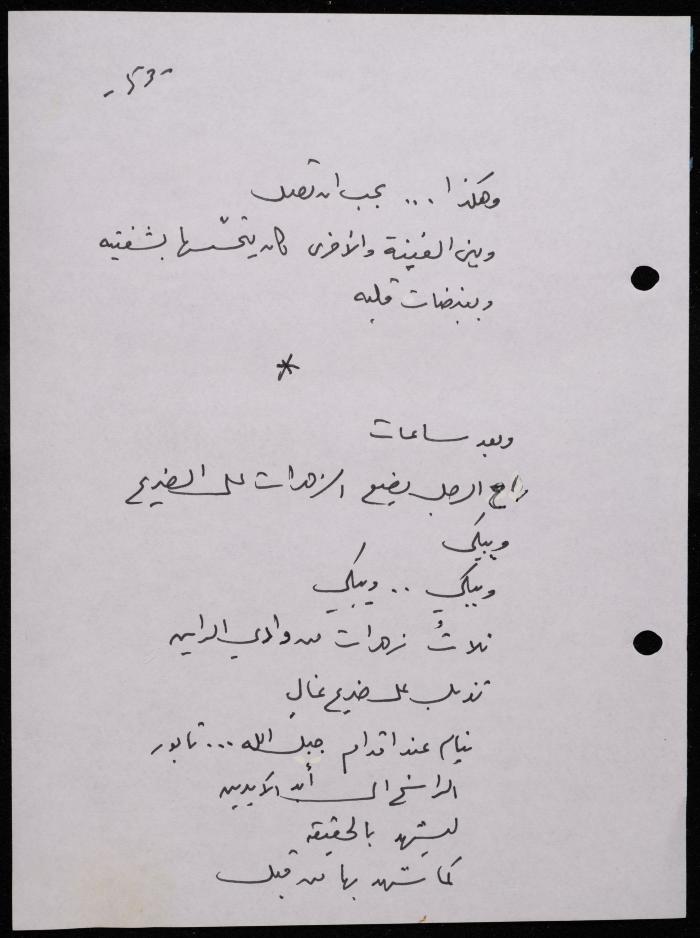 -٥٣-
وهكذا ... يجب ان تصل
وبين الفينة والأخرى كان يتحسّسها بشفتيه
وبنبضات قلبه
*
وبعد ساعات
راح الرجل يضع الزهرات على الضريح
ويبكي
ويبكي .. ويبكي
ثلاثُ زهرات من وادي الراين
تذبل على ضريح غالٍ
ينام عند اقدام جبل الله ... تابور
الراسخ الى أبد الآبدين
ليشهد بالحقيقه
كما شهد بها من قبل